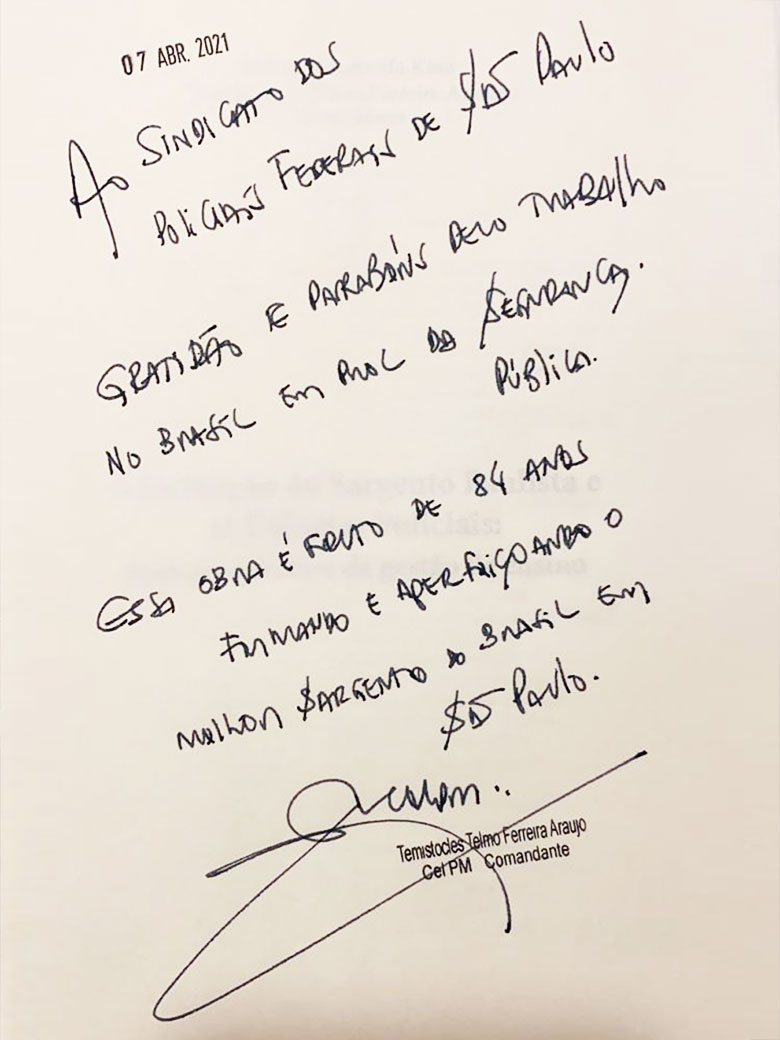 07 ABR. 2021
AO SINDICATO DOS
POLICIAIS FEDERAIS DE SÃO PAULO
GRATIDÃO E PARABÉNS PELO TRABALHO
NO BRASIL EM PROL DA SEGURANÇA
PÚBLICA.
ESSA OBRA É FRUTO DE 84 ANOS
FORMANDO E APERFEIÇOANDO O
MELHOR SARGENTO DO BRASIL EM
SÃO PAULO.
Temistocles Telmo Ferreira Araujo
Cel PM Comandante